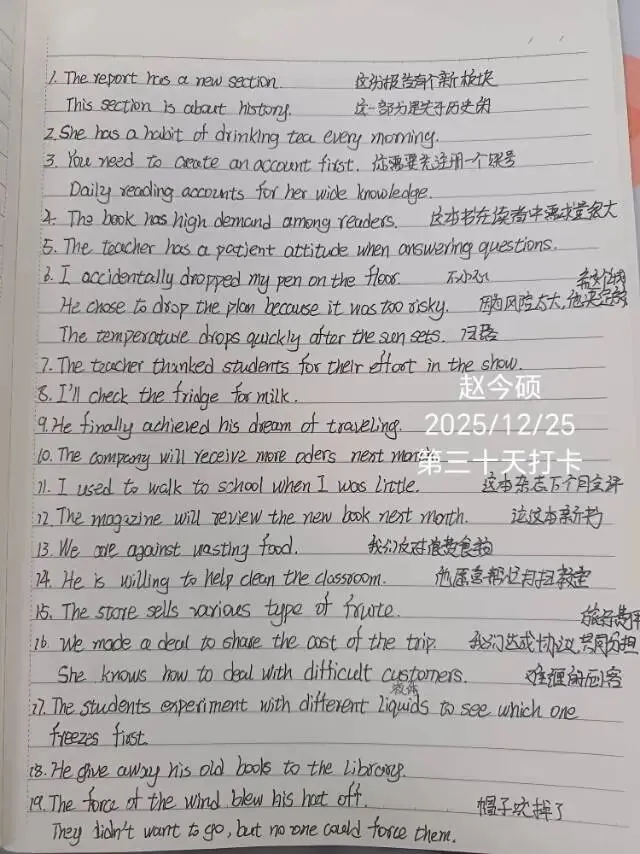 1. The report has a new section. 这份报告有个新板块
This section is about history. 这一部分是关于历史的
2. She has a habit of drinking tea every morning.
3. You need to create an account first. 你需要先注册一个账号
Daily reading accounts for her wide knowledge.
4. The book has high demand among readers. 这本书在读者中需求量很大
5. The teacher has a patient attitude when answering questions.
6. I accidentally dropped my pen on the floor. 不小心
He chose to drop the plan because it was too risky. 因为风险太大,他决定
The temperature drops quickly after the sun sets.
7. The teacher thanked students for their effort in the show.
8. I'll check the fridge for milk.
9. He finally achieved his dream of traveling.
10. The company will receive more oders next month.
11. I used to walk to school when I was little. 这本杂志下个月会评
12. The magazine will review the new book next month. 论这本新书
13. We are against wasting food. 我们反对浪费食物
14. He is willing to help clean the classroom. 他愿意帮忙打扫教室
15. The store sells various type of fruite. 旅行费用
16. We made a deal to share the cost of the trip. 我们达成协议,共同分担
She knows how to deal with difficult customers. 难缠的顾客
液体
17. The students experiment with different liquids to see which one
freezes first.
18. He give away his old books to the librorary.
19. The force of the wind blew his hat off. 帽子吹掉了
They didn't want to go, but no one could force them.
赵今硕
2025/12/25
第三十天打卡